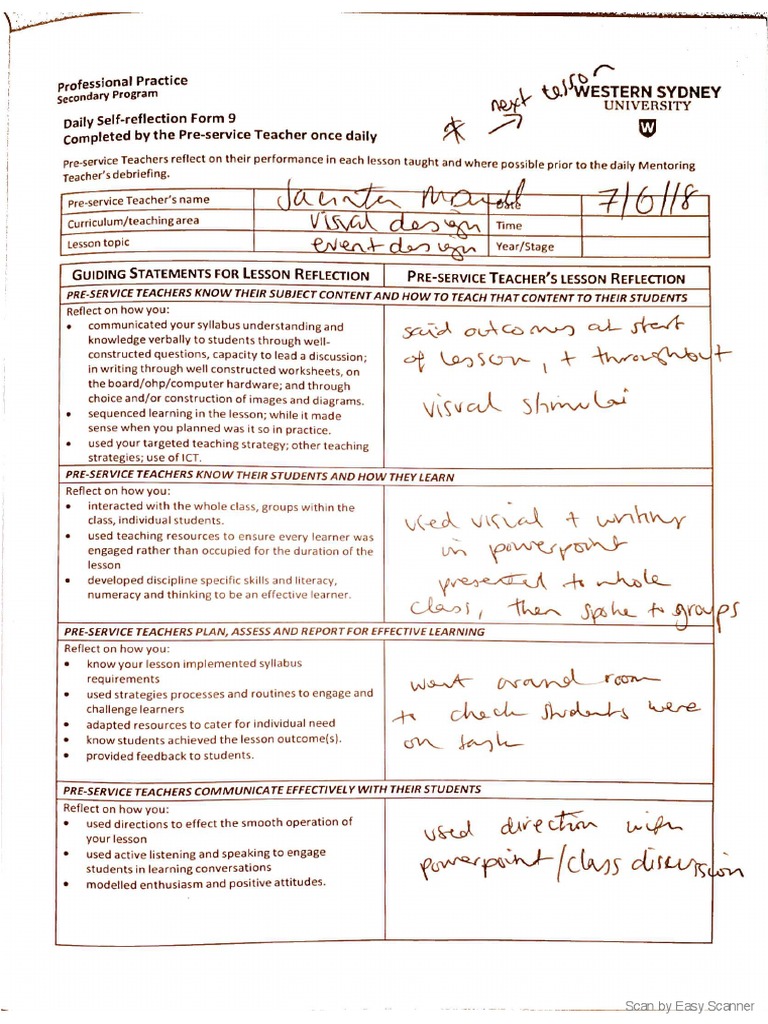 Professional Practice
Secondary Program
* → next lesson
WESTERN SYDNEY
UNIVERSITY
W
Daily Self-reflection Form 9
Completed by the Pre-service Teacher once daily
Pre-service Teachers reflect on their performance in each lesson taught and where possible prior to the daily Mentoring
Teacher's debriefing.
Pre-service Teacher's name Jacinta Date
Curriculum/teaching area visual design Time
Lesson topic event design Year/Stage
GUIDING STATEMENTS FOR LESSON REFLECTION PRE-SERVICE TEACHER'S LESSON REFLECTION
PRE-SERVICE TEACHERS KNOW THEIR SUBJECT CONTENT AND HOW TO TEACH THAT CONTENT TO THEIR STUDENTS
Reflect on how you:
• communicated your syllabus understanding and
knowledge verbally to students through well-
constructed questions, capacity to lead a discussion;
in writing through well constructed worksheets, on
the board/ohp/computer hardware; and through
choice and/or construction of images and diagrams.
• sequenced learning in the lesson; while it made
sense when you planned was it so in practice.
• used your targeted teaching strategy; other teaching
strategies; use of ICT.
said outcomes at start
of lesson, + throughout
visual stimulai
PRE-SERVICE TEACHERS KNOW THEIR STUDENTS AND HOW THEY LEARN
Reflect on how you:
• interacted with the whole class, groups within the
class, individual students.
• used teaching resources to ensure every learner was
engaged rather than occupied for the duration of the
lesson
• developed discipline specific skills and literacy,
numeracy and thinking to be an effective learner.
used visual + writing
in powerpoint
presented to whole
class, then spoke to groups
PRE-SERVICE TEACHERS PLAN, ASSESS AND REPORT FOR EFFECTIVE LEARNING
Reflect on how you:
• know your lesson implemented syllabus
requirements
• used strategies processes and routines to engage and
challenge learners
• adapted resources to cater for individual need
• know students achieved the lesson outcome(s).
• provided feedback to students.
went around room
to check students were
on task
PRE-SERVICE TEACHERS COMMUNICATE EFFECTIVELY WITH THEIR STUDENTS
Reflect on how you:
• used directions to effect the smooth operation of
your lesson
• used active listening and speaking to engage
students in learning conversations
• modelled enthusiasm and positive attitudes.
used direction with
powerpoint/class discussion
Scan by Easy Scanner